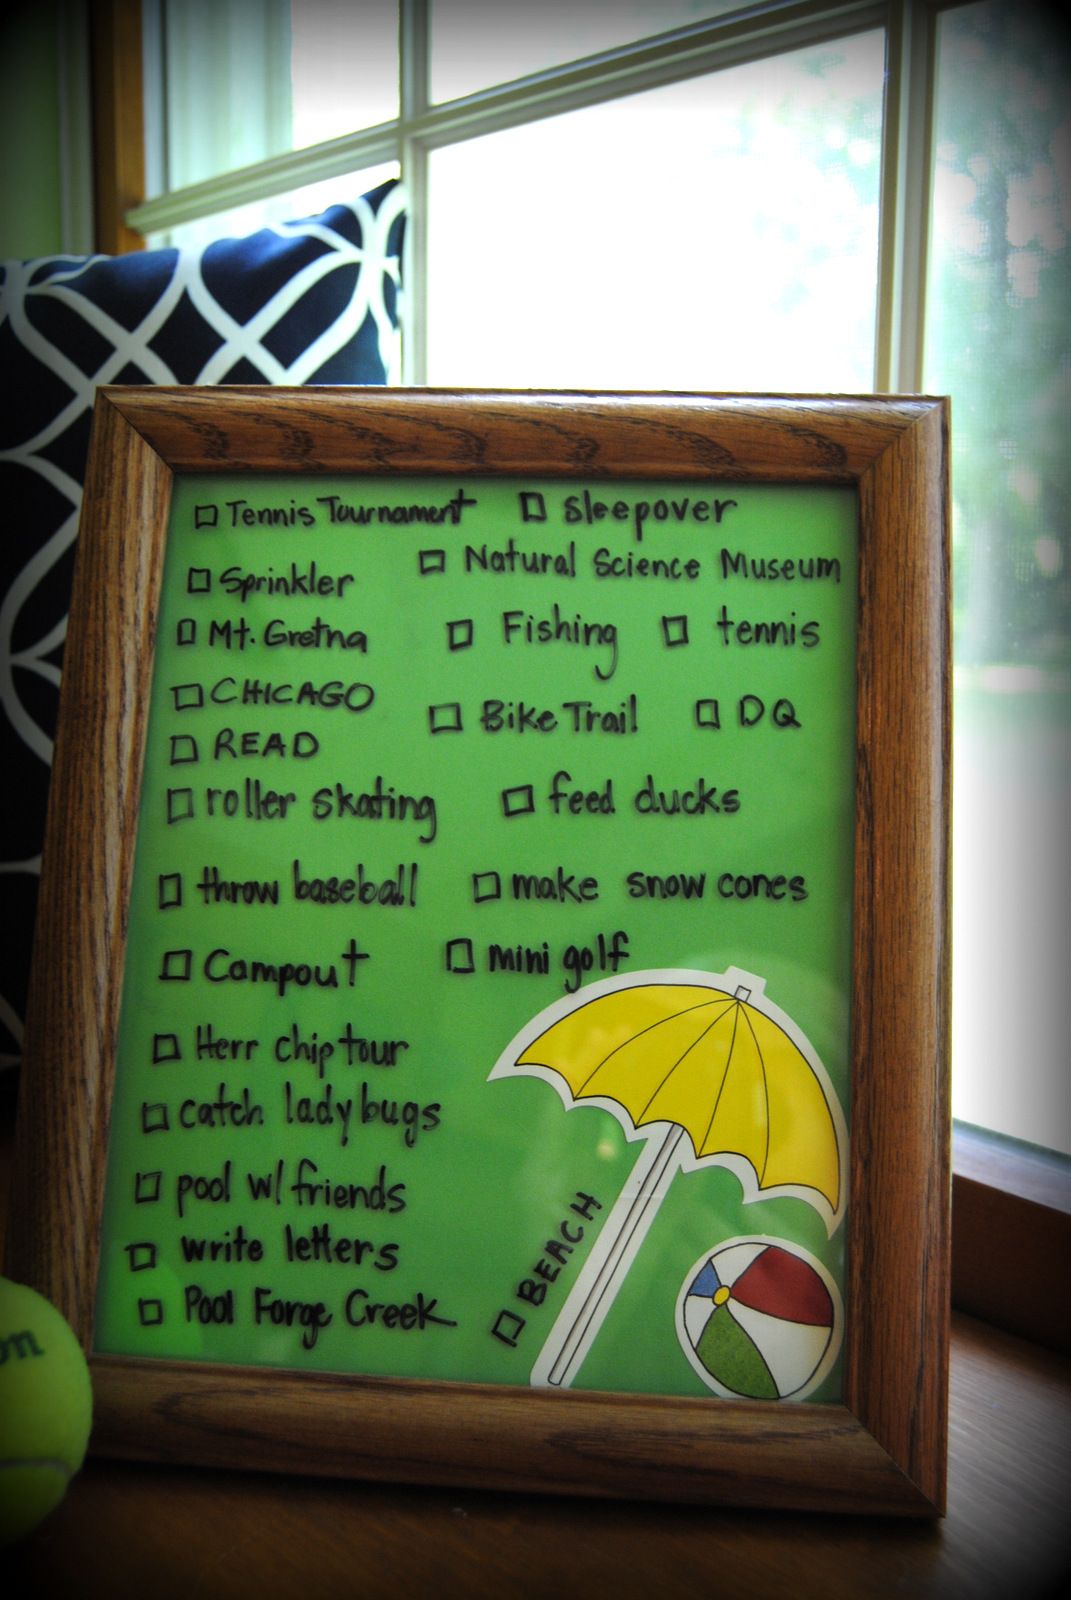 ☐ Tennis Tournament ☐ sleepover
☐ Natural Science Museum
☐ Sprinkler
☐ Mt. Gretna ☐ Fishing ☐ tennis
☐ CHICAGO
☐ Bike Trail ☐ DQ
☐ READ
☐ roller skating ☐ feed ducks
☐ throw baseball ☐ make snow cones
☐ Campout ☐ mini golf
☐ Herr chip tour
☐ catch ladybugs
☐ pool w/ friends
☐ write letters
☐ Pool Forge Creek
☐ BEACH
on